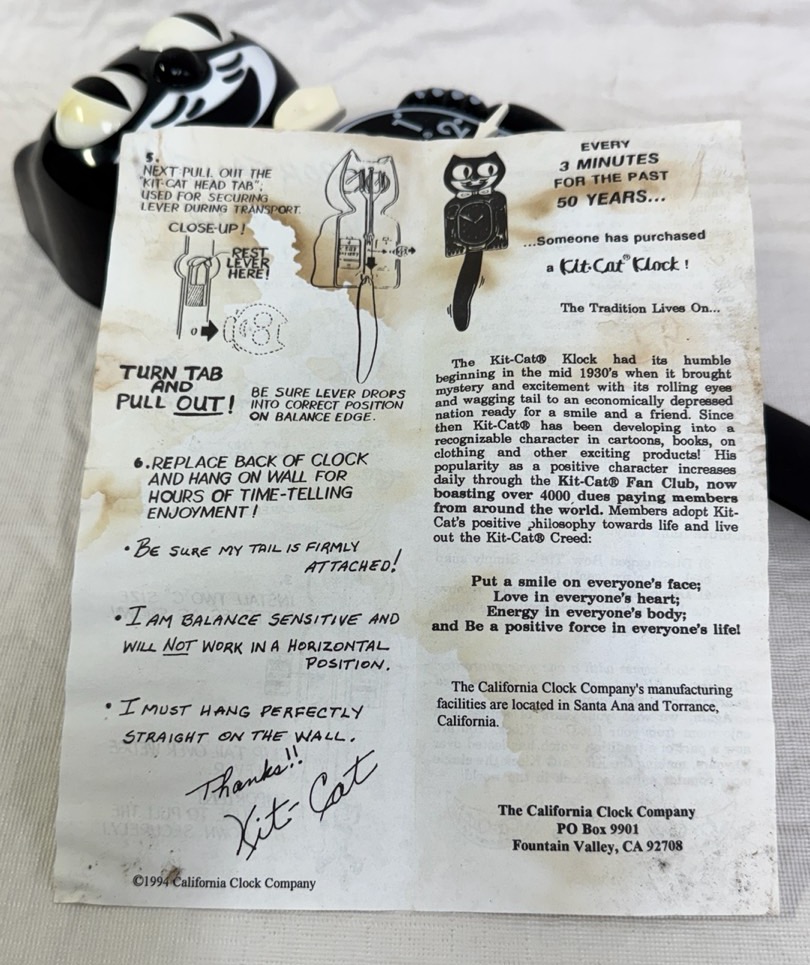 5.
NEXT PULL OUT THE
"KIT-CAT HEAD TAB",
USED FOR SECURING
LEVER DURING TRANSPORT.
CLOSE-UP!
REST
LEVER
HERE!
TURN TAB
AND
PULL OUT!
BE SURE LEVER DROPS
INTO CORRECT POSITION
ON BALANCE EDGE.
6. REPLACE BACK OF CLOCK
AND HANG ON WALL FOR
HOURS OF TIME-TELLING
ENJOYMENT!
• BE SURE MY TAIL IS FIRMLY
ATTACHED!
• I AM BALANCE SENSITIVE AND
WILL NOT WORK IN A HORIZONTAL
POSITION.
• I MUST HANG PERFECTLY
STRAIGHT ON THE WALL.
Thanks!!
Kit-Cat
©1994 California Clock Company
EVERY
3 MINUTES
FOR THE PAST
50 YEARS...
...Someone has purchased
a Kit-Cat® Klock!
The Tradition Lives On...
The Kit-Cat® Klock had its humble
beginning in the mid 1930's when it brought
mystery and excitement with its rolling eyes
and wagging tail to an economically depressed
nation ready for a smile and a friend. Since
then Kit-Cat® has been developing into a
recognizable character in cartoons, books, on
clothing and other exciting products! His
popularity as a positive character increases
daily through the Kit-Cat® Fan Club, now
boasting over 4000 dues paying members
from around the world. Members adopt Kit-
Cat's positive philosophy towards life and live
out the Kit-Cat® Creed:
Put a smile on everyone's face;
Love in everyone's heart;
Energy in everyone's body;
and Be a positive force in everyone's life!
The California Clock Company's manufacturing
facilities are located in Santa Ana and Torrance,
California.
The California Clock Company
PO Box 9901
Fountain Valley, CA 92708